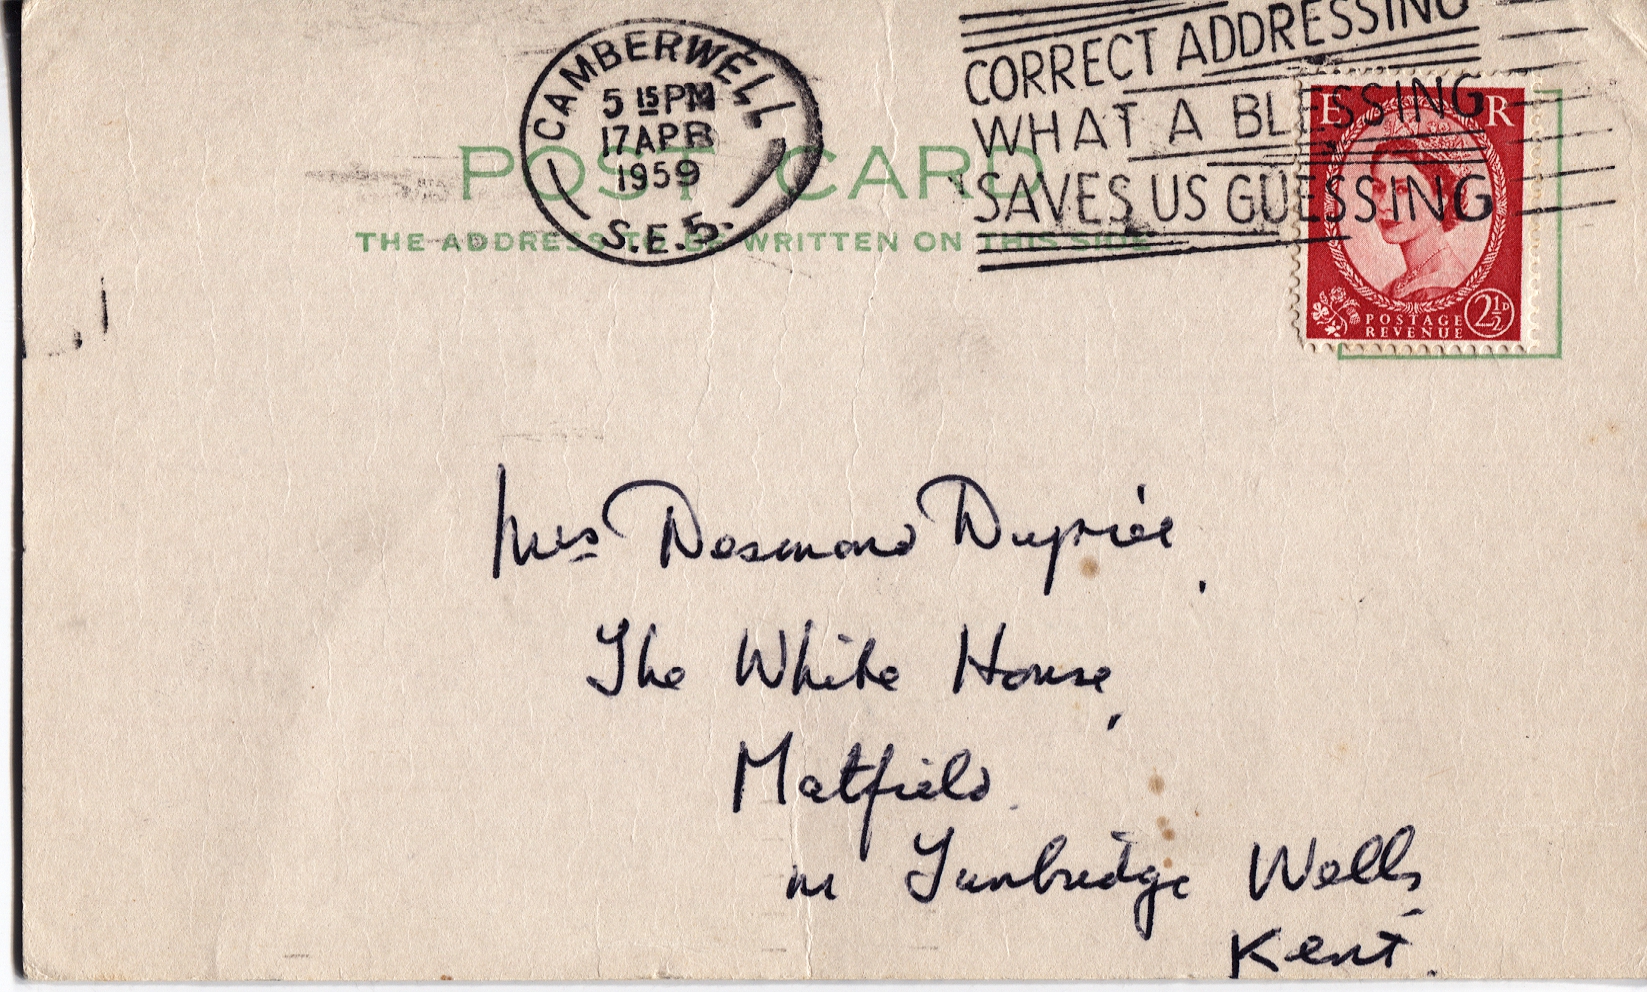 CAMBERWELL
5 15 PM
17 APR
1959
S.E.5.
CORRECT ADDRESSING
WHAT A BLESSING
SAVES US GUESSING
E R
POSTAGE
REVENUE
2½D
POST CARD
THE ADDRESS TO BE WRITTEN ON THIS SIDE
Mrs Desmond Dupré,
The White House,
Matfield
nr Tunbridge Wells
Kent.